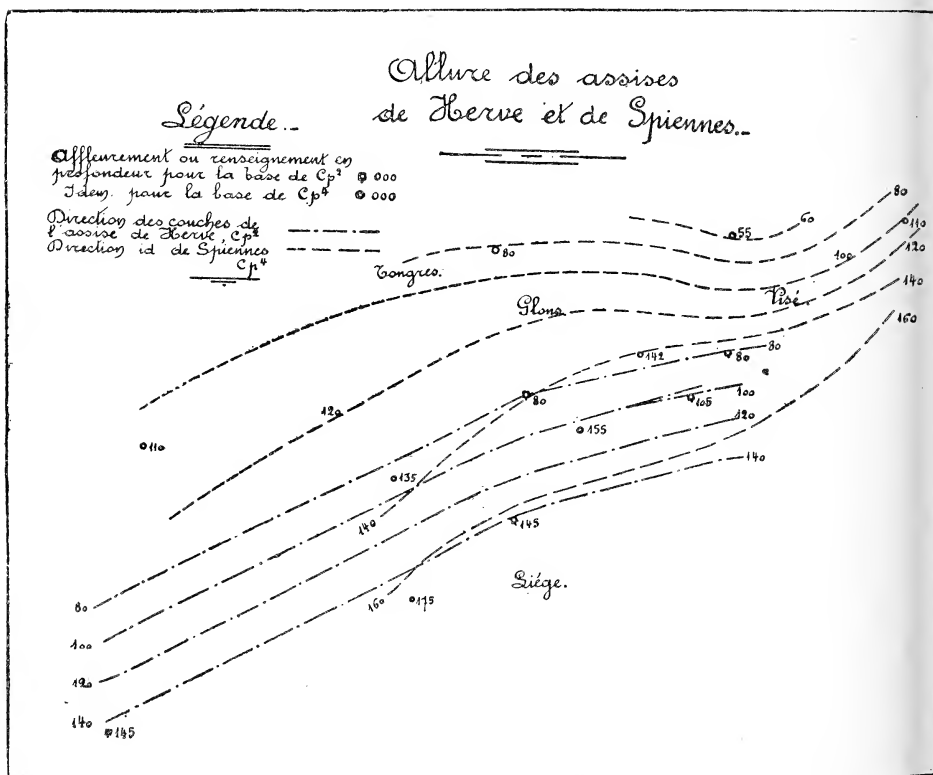 Allure des assises
de Herve et de Spiennes
Légende
Affleurement ou renseignement en
profondeur pour la base de Cp² 000
Idem. pour la base de Cp⁴ 000
Direction des couches de
l'assise de Herve, Cp²
Direction id de Spiennes
Cp⁴
80
60
55
110
80
100
120
Tongres.
140
Visé.
Glons
160
142
80
80
80
100
105
120
120
155
110
140
135
140
145
Liége.
80
160
175
100
120
140
145